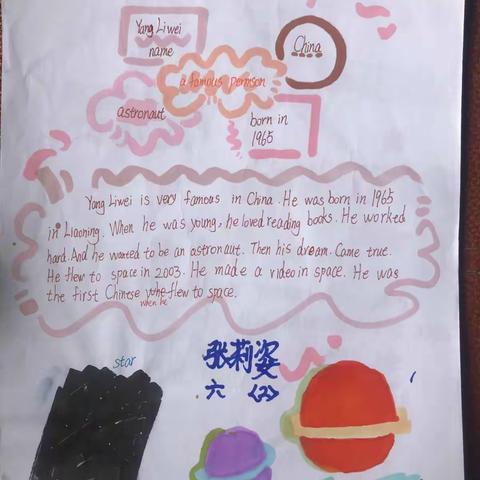 Yang Liwei
name
China
a famous permson
astronaut
born in
1965
Yang Liwei is very famous in China. He was born in 1965
in Liaoning. When he was young, he loved reading books. He worked
hard. And he wanted to be an astronaut. Then his dream. Came true.
He flew to space in 2003. He made a video in space. He was
the first Chinese who flew to space.
when he
star
张莉姿
六 <2>